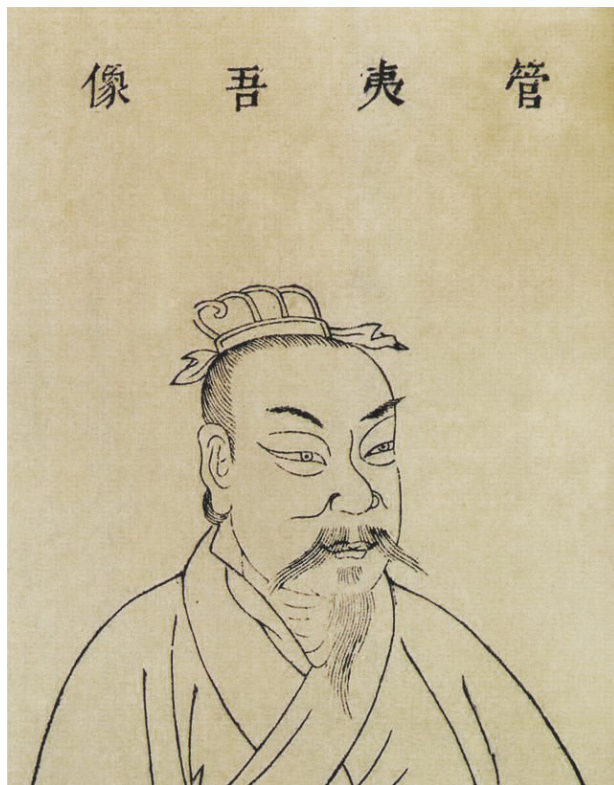 管夷吾像